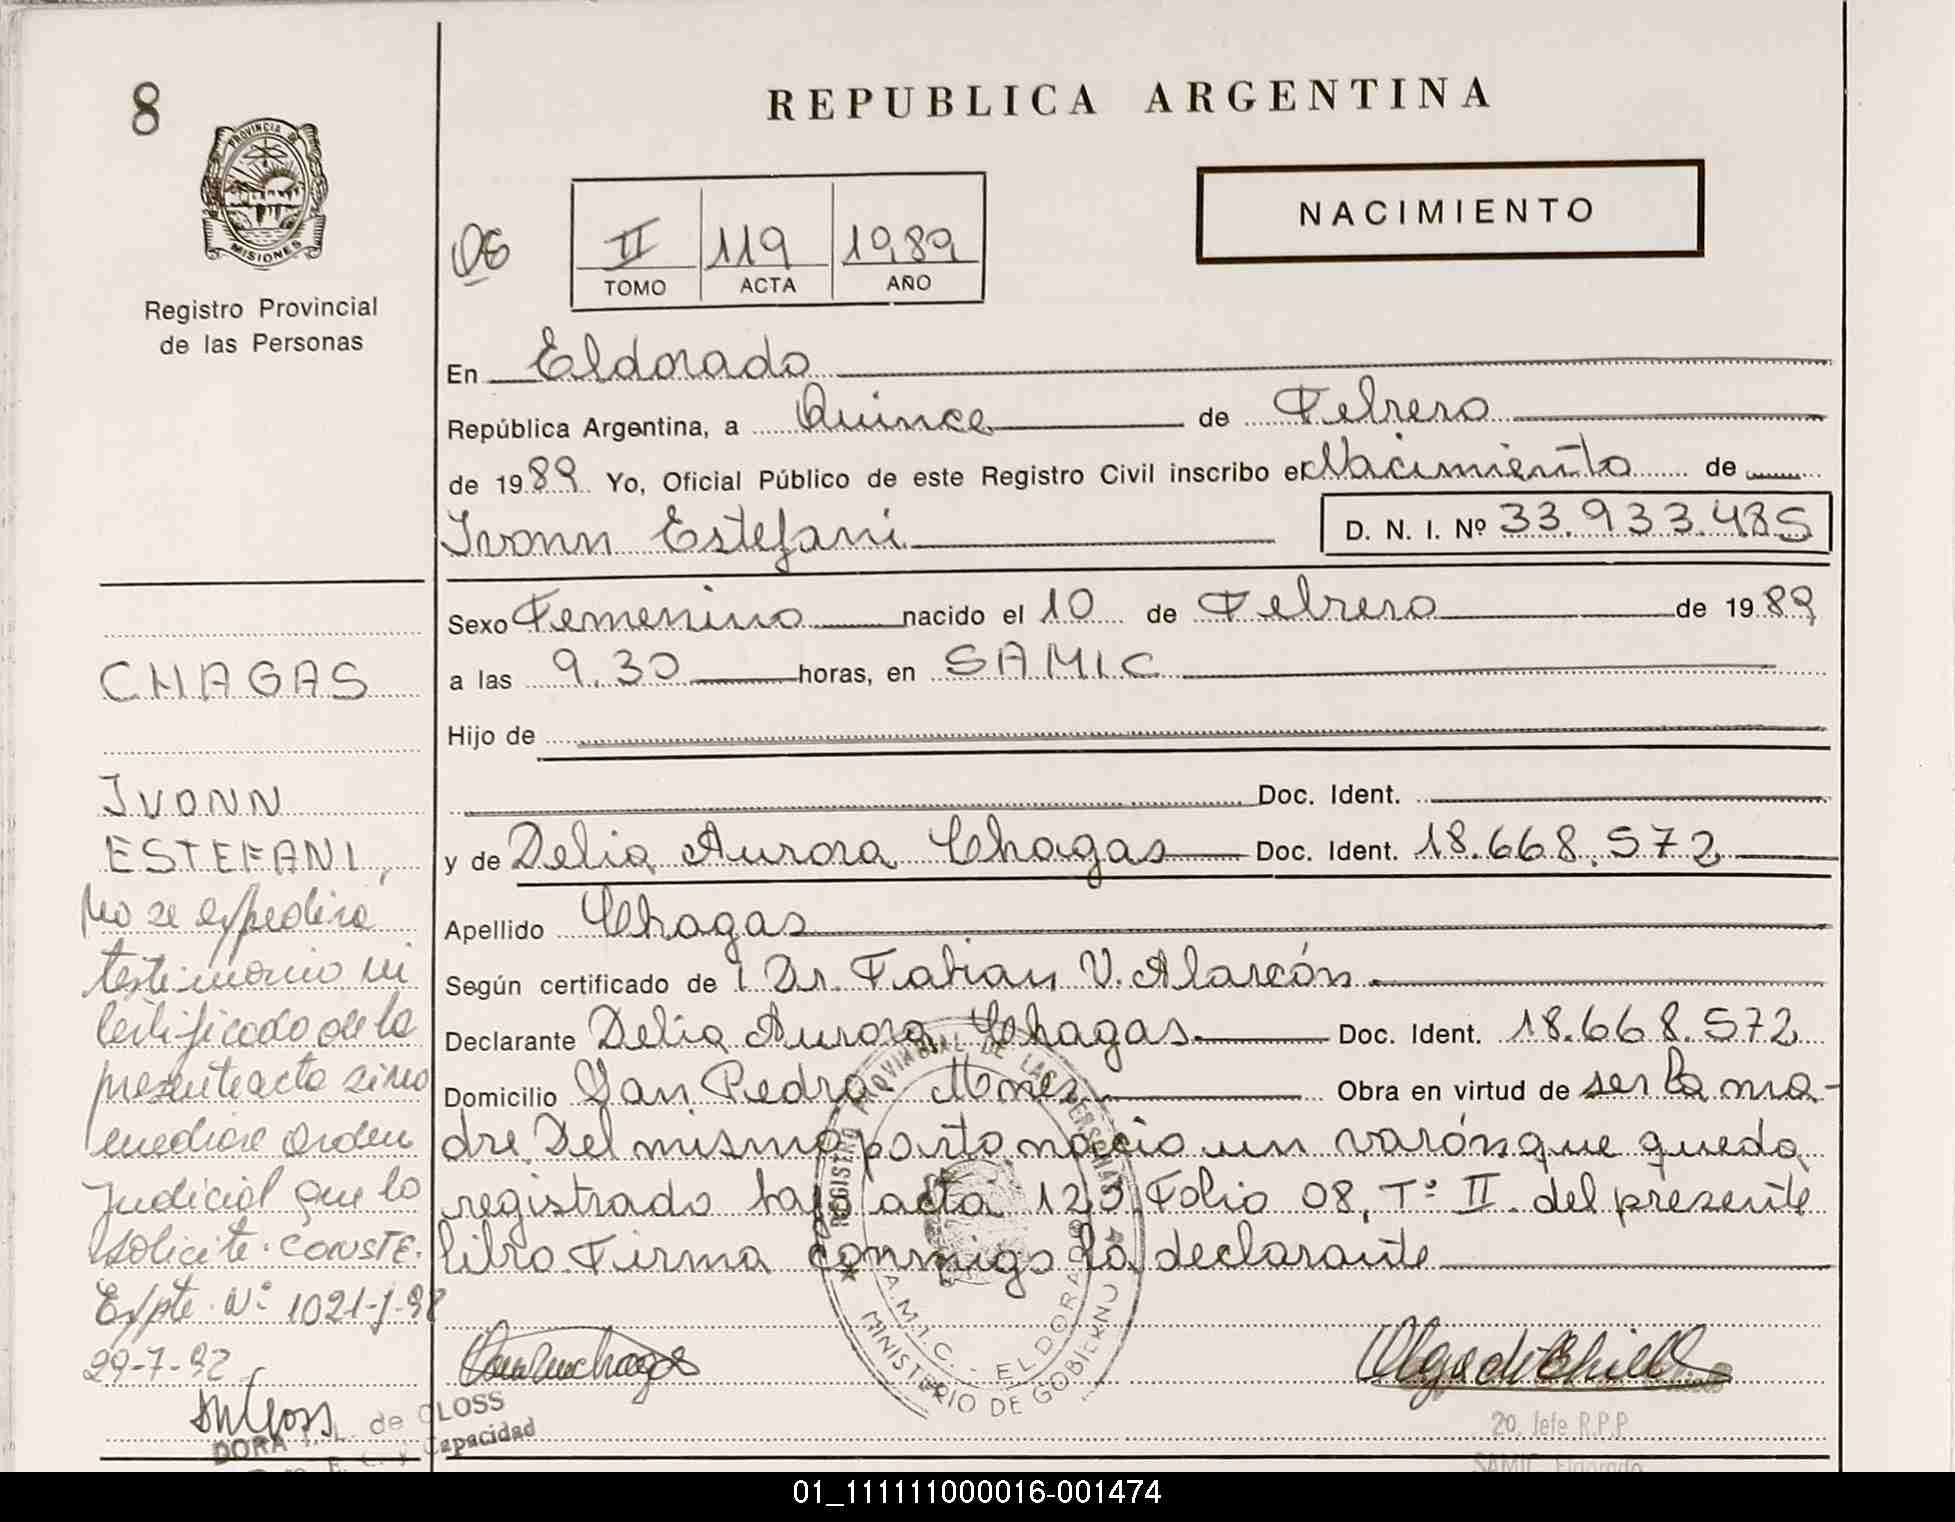 8
REPUBLICA ARGENTINA
PROVINCIA DE
MISIONES
NACIMIENTO
06
II 119 1989
TOMO ACTA AÑO
Registro Provincial
de las Personas
En Eldorado
República Argentina, a Quince de Febrero
de 1989 Yo, Oficial Público de este Registro Civil inscribo el Nacimiento de
Ivonn Estefani D. N. I. Nº 33.933.485
Sexo Femenino nacido el 10 de Febrero de 1989
a las 9.30 horas, en SAMIC
Hijo de
Doc. Ident.
y de Delia Aurora Chagas Doc. Ident. 18.668.572
Apellido Chagas
Según certificado de l Dr. Fabian V. Alarcón
Declarante Delia Aurora Chagas Doc. Ident. 18.668.572
Domicilio San Pedro Mnes. Obra en virtud de ser la ma-
dre. Del mismo parto nacio un varón que queda
registrado bajo acta 120, Folio 08, Tº II del presente
libro. Firma conmigo la declarante
CHAGAS
IVONN
ESTEFANI,
No se expedira
testimonio ni
certificado de la
presente acta sino
mediare Orden
Judicial que lo
solicite. CONSTE.
Expte. Nº 1021-J-92
29-7-92
DORA de CLOSS
Capacidad
REGISTRO PROVINCIAL DE LAS PERSONAS
S.A.M.I.C. - ELDORADO
MINISTERIO DE GOBIERNO
20. Jefe R.P.P
SAMIC Eldorado
01_111111000016-001474